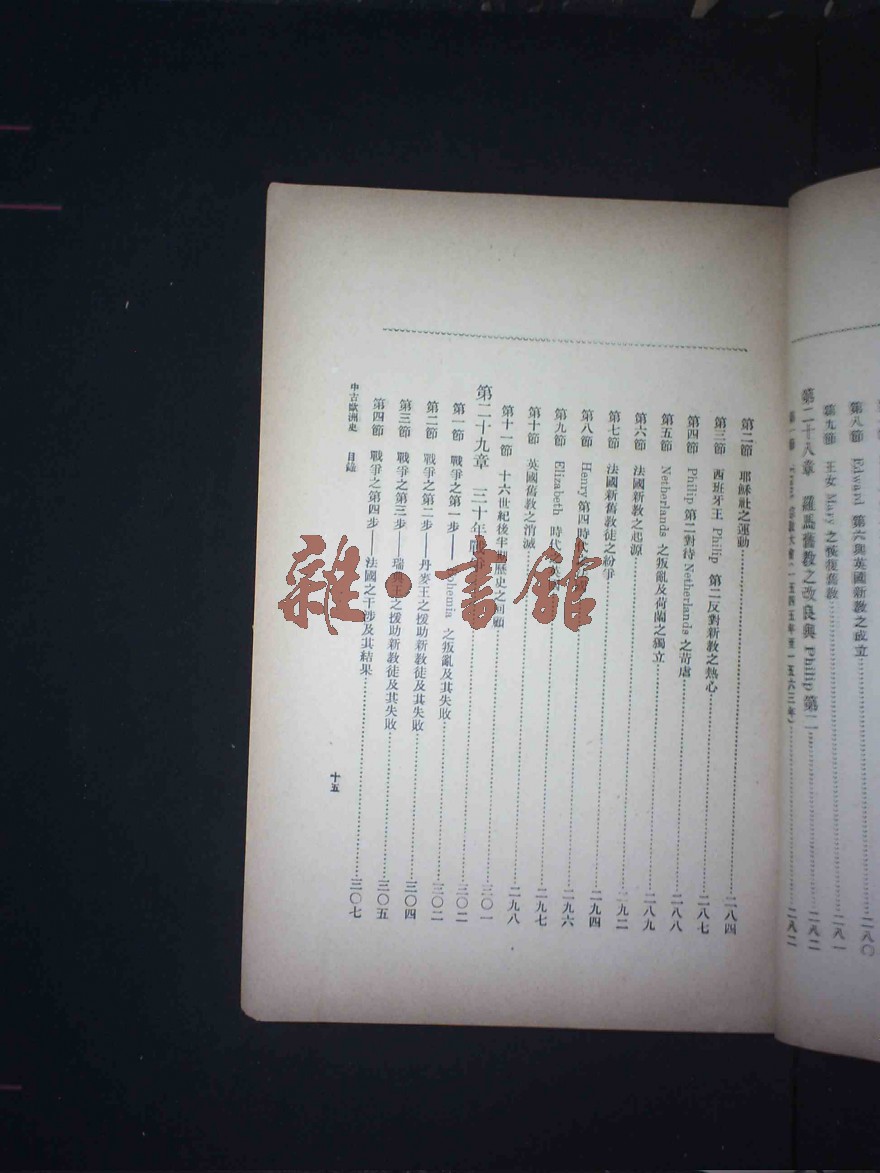 第八節 Edward 第六與英國新教之成立 二八〇
第九節 王女 Mary 之恢復舊教 二八一
第二十八章 羅馬舊教之改良與 Philip 第二 二八二
第一節 大會(一五四五年至一五六三年) 二八二
第二節 耶穌社之運動 二八四
第三節 西班牙王 Philip 第二反對新教之熱心 二八七
第四節 Philip 第二對待 Netherlands 之苛虐 二八八
第五節 Netherlands 之叛亂及荷蘭之獨立 二八九
第六節 法國新教之起源 二九二
第七節 法國新舊教徒之紛爭 二九四
第八節 Henry 第四時代 二九六
第九節 Elizabeth 時代 二九七
第十節 英國舊教之消滅 二九八
第十一節 十六世紀後半期歷史之回顧 三〇一
第二十九章 三十年戰爭 三〇二
第一節 戰爭之第一步——Bohemia 之叛亂及其失敗 三〇二
第二節 戰爭之第二步——丹麥王之援助新教徒及其失敗 三〇四
第三節 戰爭之第三步——瑞典王之援助新教徒及其失敗 三〇五
第四節 戰爭之第四步——法國之干涉及其結果 三〇七
中古歐洲史 目錄 十五
雜·書館